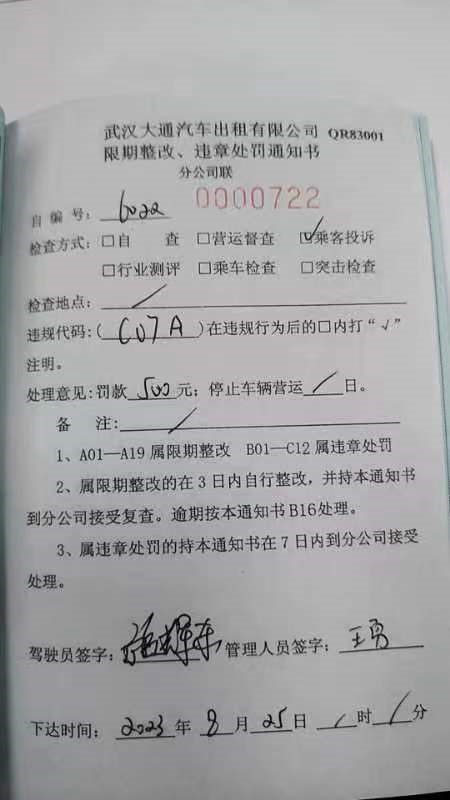 武汉大通汽车出租有限公司 QR83001
限期整改、违章处罚通知书
分公司联
自编号: 6022 0000722
检查方式: □自 查 □营运督查 ☑乘客投诉
□行业测评 □乘车检查 □突击检查
检查地点: /
违规代码:( C07A )在违规行为后的□内打“√”
注明。
处理意见:罚款 500 元; 停止车辆营运 / 日。
备 注: /
1、A01—A19 属限期整改 B01—C12 属违章处罚
2、属限期整改的在 3 日内自行整改, 并持本通知书
到分公司接受复查。逾期按本通知书 B16 处理。
3、属违章处罚的持本通知书在 7 日内到分公司接受
处理。
驾驶员签字: 管理人员签字: 王勇
下达时间: 2023 年 8 月 25 日 / 时 / 分